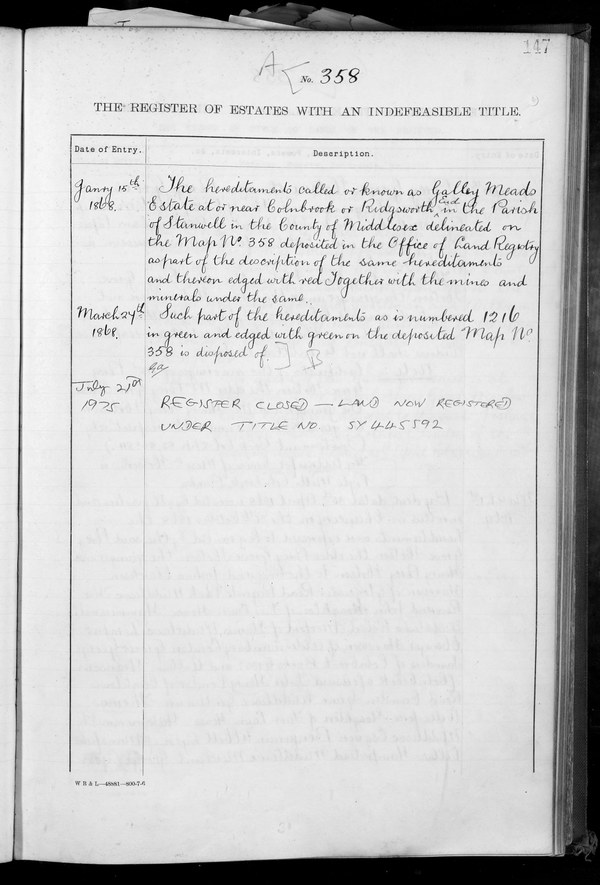 147
A
No. 358
THE REGISTER OF ESTATES WITH AN INDEFEASIBLE TITLE.
Date of Entry.
Description.
Janry 15th
1868.
The hereditaments called or known as Galley Meads
Estate at or near Colnbrook or Pudgsworth End in the Parish
of Stanwell in the County of Middlesex delineated on
the Map No. 358 deposited in the Office of Land Registry
as part of the description of the same hereditaments
and thereon edged with red Together with the mines and
minerals under the same.
March 24th
1868.
Such part of the hereditaments as is numbered 1216
in green and edged with green on the deposited Map No.
358 is disposed of.
July 21st
1975
REGISTER CLOSED — LAND NOW REGISTERED
UNDER TITLE NO. SY445592
W B & L—48881—800-7-6